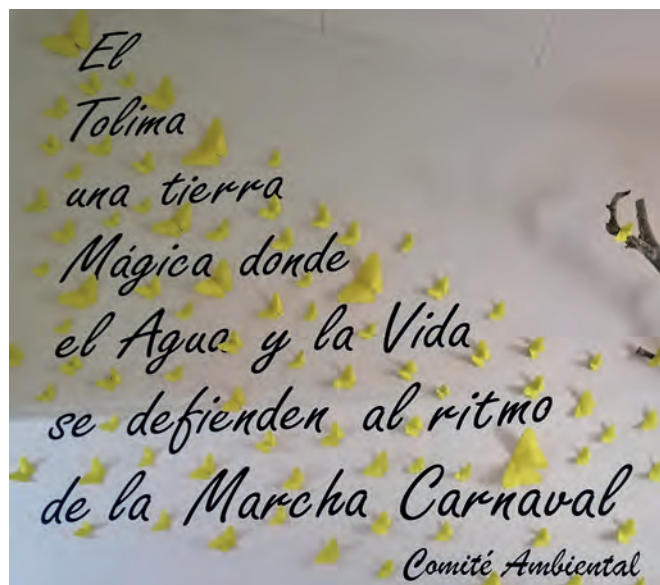 El
Tolima
una tierra
Mágica donde
el Agua y la Vida
se defienden al ritmo
de la Marcha Carnaval
Comité Ambiental